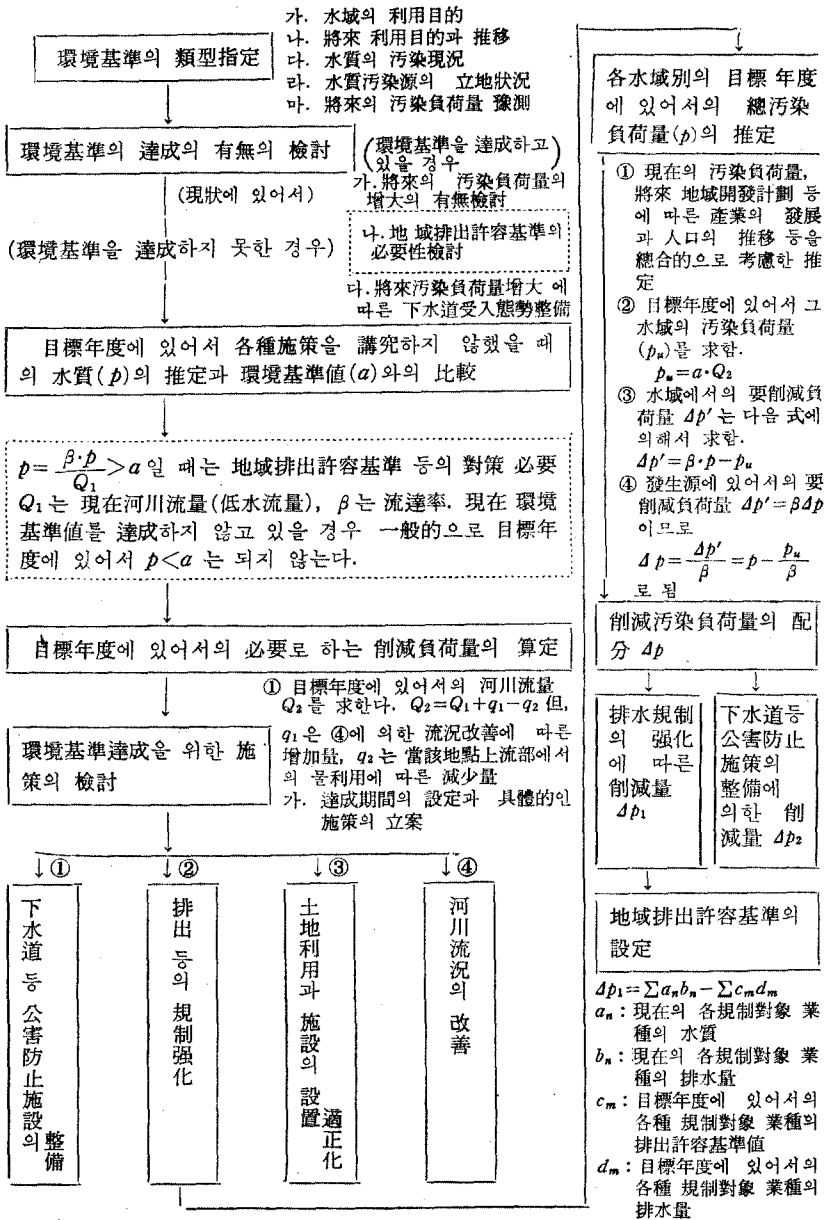 環境基準의 類型指定
가. 水域의 利用目的
나. 將來 利用目的과 推移
다. 水質의 汚染現況
라. 水質汚染源의 立地狀況
마. 將來의 汚染負荷量 豫測
環境基準의 達成의 有無의 檢討
(環境基準을 達成하고
있을 경우)
가. 將來의 汚染負荷量의
增大의 有無檢討
(現狀에 있어서)
나. 地域排出許容基準의
必要性檢討
(環境基準을 達成하지 못한 경우)
다. 將來汚染負荷量增大에
따른 下水道受入態勢整備
目標年度에 있어서 各種施策을 講究하지 않했을 때
의 水質(p)의 推定과 環境基準値(a)와의 比較
p=β·p/Q₁>a일 때는 地域排出許容基準 등의 對策 必要
Q₁는 現在河川流量(低水流量), β는 流達率. 現在 環境
基準値를 達成하지 않고 있을 경우 一般的으로 目標年
度에 있어서 p<a 는 되지 않는다.
目標年度에 있어서의 必要로 하는 削減負荷量의 算定
① 目標年度에 있어서의 河川流量
Q₂를 求한다. Q₂=Q₁+q₁−q₂ 但,
q₁은 ④에 의한 流況改善에 따른
增加量, q₂는 當該地點上流部에서
의 물利用에 따른 減少量
가. 達成期間의 設定과 具體的인
施策의 立案
環境基準達成을 위한 施
策의 檢討
↓① ↓② ↓③ ↓④
下水道 등 公害防止施設의 整備
排出 등의 規制强化
土地利用과 施設의 設置 適正化
河川流況의 改善
各水域別의 目標 年度
에 있어서의 總汚染
負荷量(p)의 推定
① 現在의 汚染負荷量,
將來 地域開發計劃 등
에 따른 產業의 發展
과 人口의 推移 등을
總合的으로 考慮한 推
定
② 目標年度에 있어서 그
水域의 汚染負荷量
(pᵤ)를 求함.
pᵤ=a·Q₂
③ 水域에서의 要削減負
荷量 Δp′는 다음 式에
의해서 求함.
Δp′=β·p−pᵤ
④ 發生源에 있어서의 要
削減負荷量 Δp′=βΔp
이므로
Δp=Δp′/β=p−pᵤ/β
로 됨
削減汚染負荷量의 配
分 Δp
排水規制
의 强化
에 따른
削減量
Δp₁
下水道등
公害防止
施策의
整備에
의한 削
減量 Δp₂
地域排出許容基準의
設定
Δp₁=∑aₙbₙ−∑cₘdₘ
aₙ : 現在의 各規制對象 業
種의 水質
bₙ : 現在의 各規制對象 業
種의 排水量
cₘ : 目標年度에 있어서의
各種 規制對象 業種의
排出許容基準値
dₘ : 目標年度에 있어서의
各種 規制對象 業種의
排水量